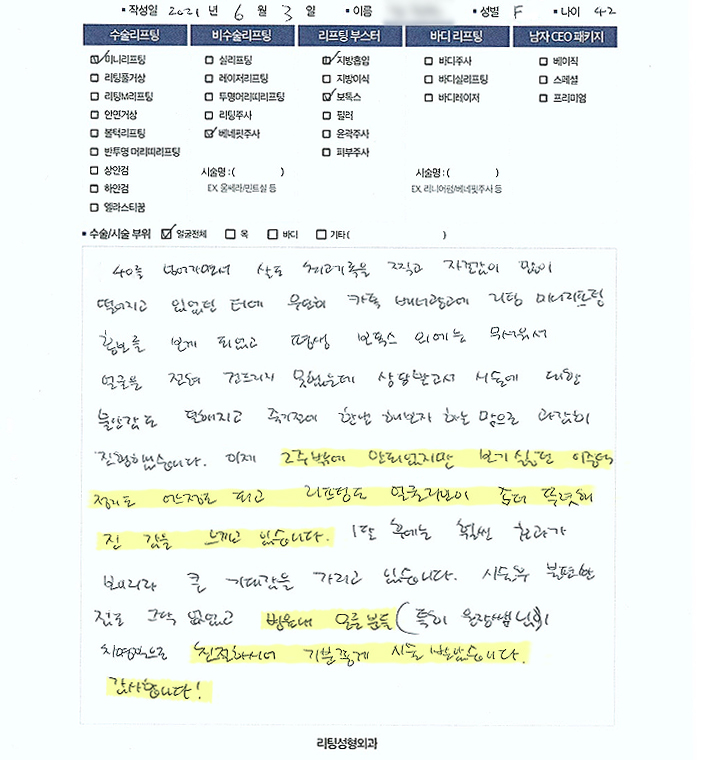 • 작성일 2021 년 6 월 3 일 • 이름 • 성별 F • 나이 42
수술리프팅 비수술리프팅 리프팅 부스터 바디 리프팅 남자 CEO 패키지
미니리프팅 실리프팅 지방흡입 바디주사 베이직
리팅풀거상 레이저리프팅 지방이식 바디실리프팅 스페셜
리팅M리프팅 투명머리띠리프팅 보톡스 바디레이저 프리미엄
안면거상 리팅주사 필러
볼턱리프팅 베네핏주사 윤곽주사
반투명 머리띠리프팅 피부주사
상안검 시술명 : ( ) 시술명 : ( )
하안검 EX. 울쎄라/민트실 등 EX. 리니어펌/베네핏주사 등
엘라스티꿈
• 수술/시술 부위 얼굴전체 목 바디 기타 ( )
40을 넘어가면서 살도 최고기록을 찍고 자존감이 많이
떨어지고 있었던 터에 우연히 카톡 배너광고에 리팅 미니리프팅
홍보를 보게 되었고 평생 보톡스 외에는 무서워서
얼굴을 전혀 건드리지 못했는데 상담받고서 시술에 대한
불안감도 덜해지고 죽기전에 한번 해보자 하는 맘으로 과감히
진행하였습니다. 이제 2주밖에 안되었지만 보기 싫던 이중턱
정리도 어느정도 되고 리프팅도 얼굴라인이 좀더 뚜렷해
진 감을 느끼고 있습니다. 1달 후에는 훨씬 효과가
보이리라 큰 기대감을 가지고 있습니다. 시술후 불편한
점도 그닥 없었고 병원내 모든 분들 (특히 원장쌤님)이
치명적으로 친절하시어 기분좋게 시술 받았습니다.
감사합니다!
리팅성형외과